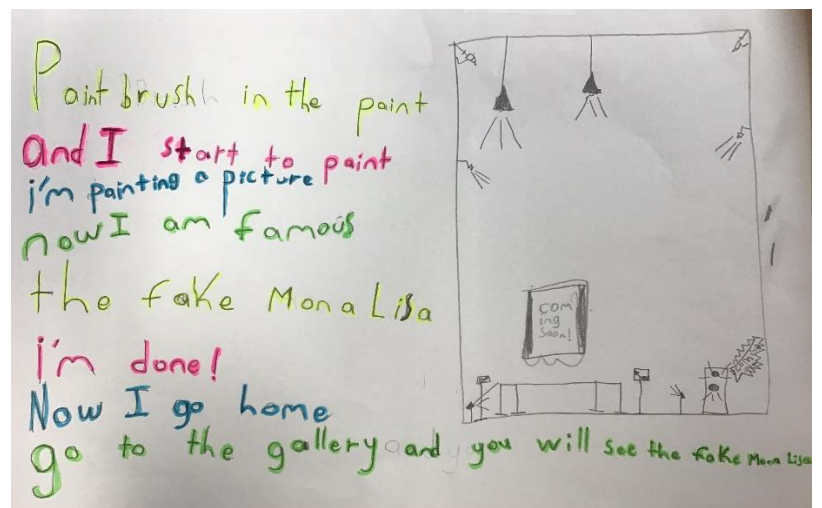 Paint brush in the paint
and I start to paint
i'm painting a picture
now I am famous
the fake Mona Lisa
i'm done!
Now I go home
go to the gallery and you will see the fake Mona Lisa
com
ing
soon!